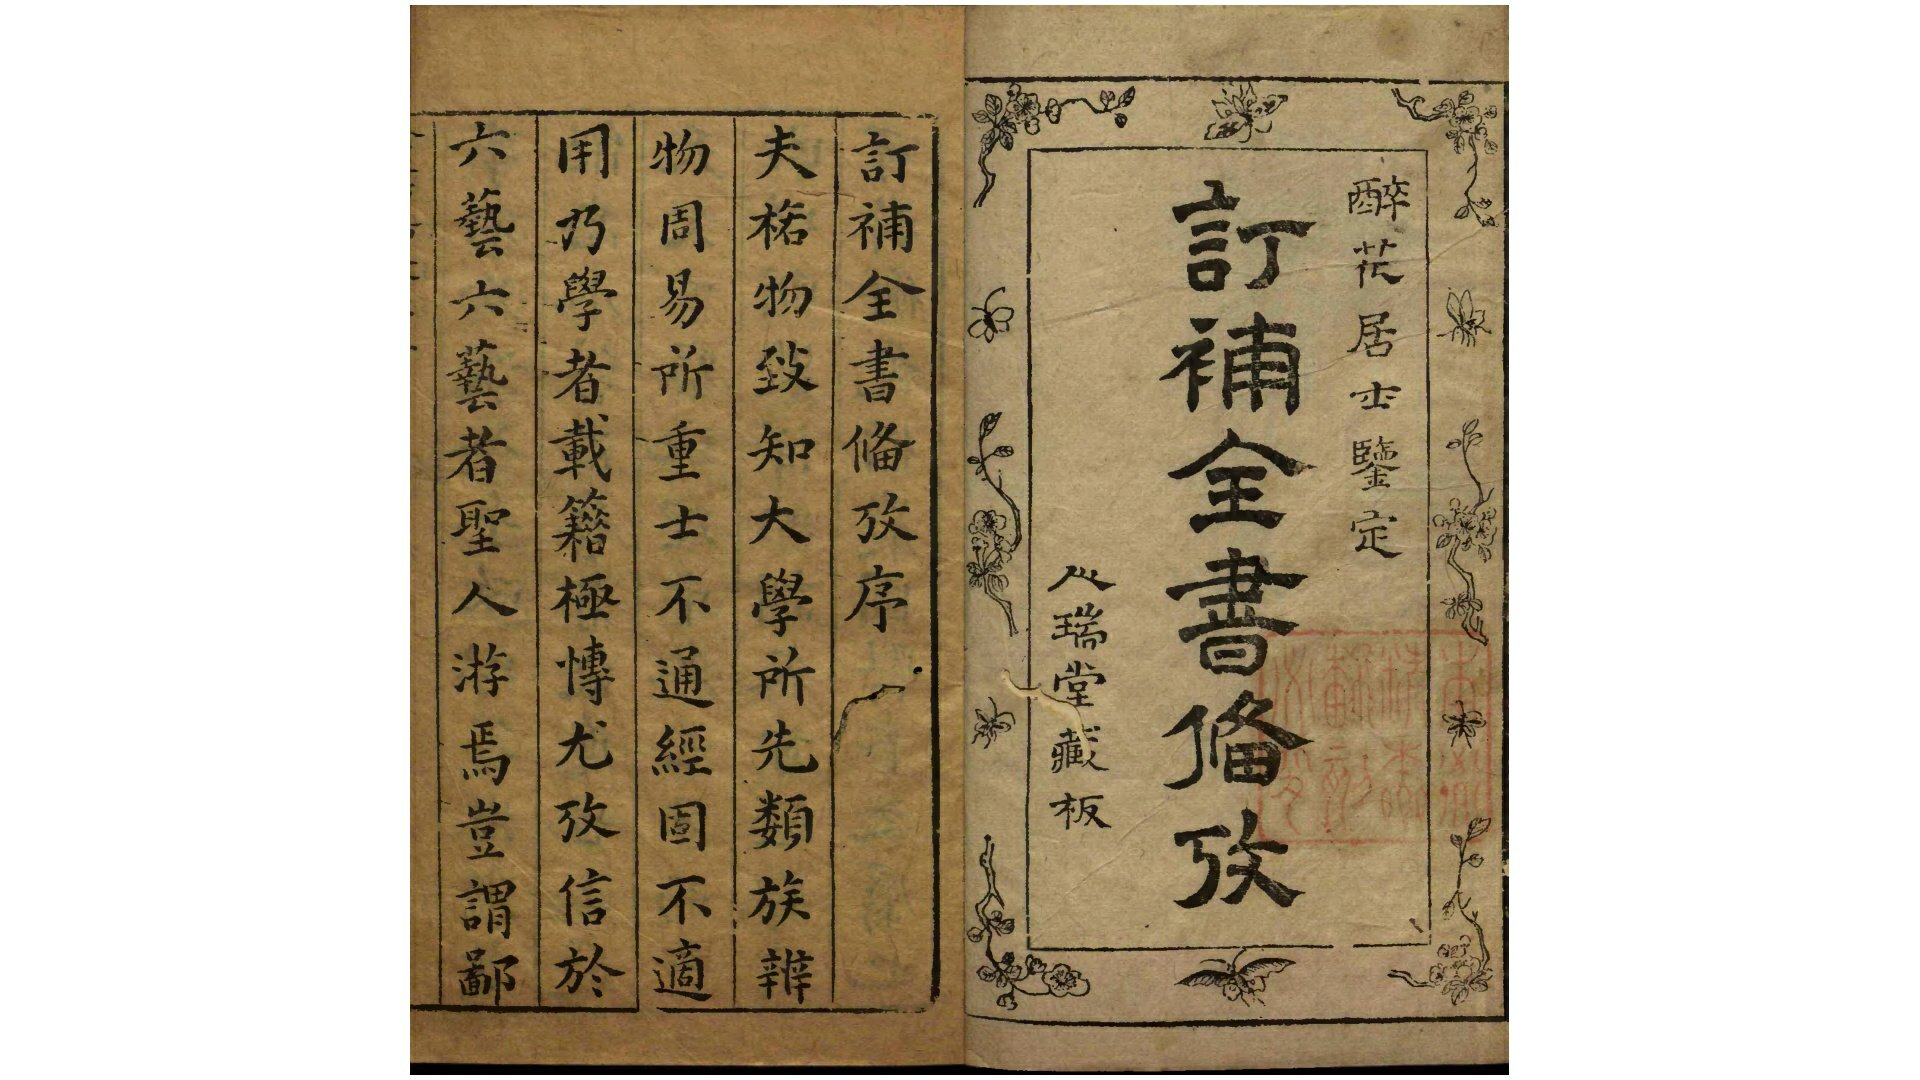 醉花居士鑒定
訂補全書俻攷
瑞堂藏板
訂補全書俻攷序
夫格物致知大學所先類族辨
物周易所重士不通經固不適
用乃學者載籍極慱尤攷信於
六藝六藝者聖人游焉豈謂鄙